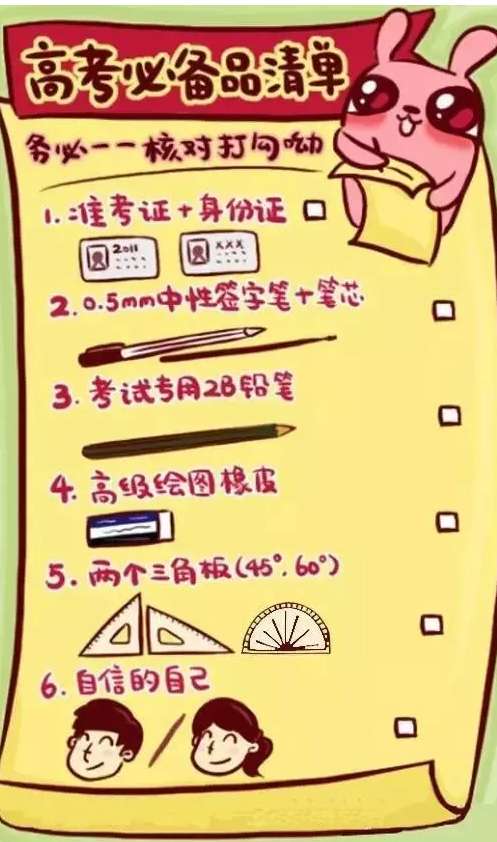 高考必备品清单
务必一一核对打勾呦
1.准考证+身份证
2011
XXX
2.0.5mm中性签字笔+笔芯
3.考试专用2B铅笔
4.高级绘图橡皮
5.两个三角板(45°.60°)
6.自信的自己